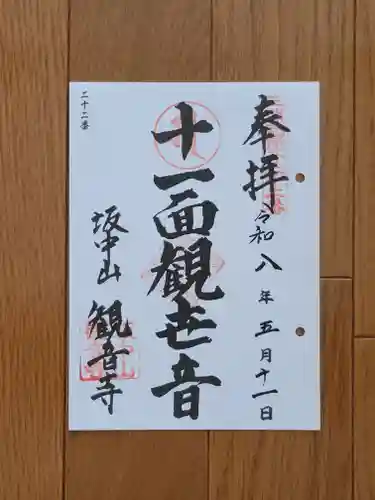 奉拝
令和八年五月十一日
十一面観世音
坂中山 観音寺
二十二番